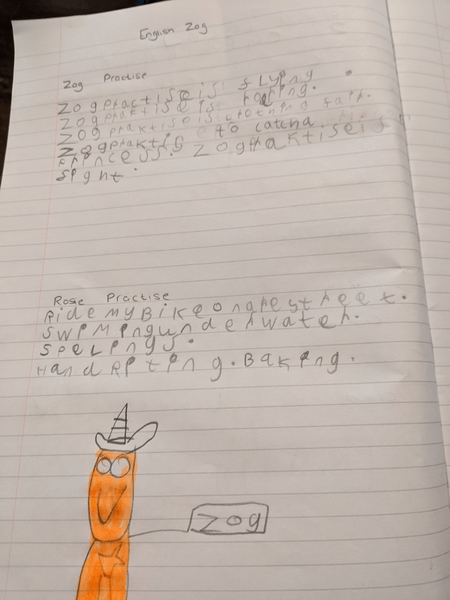 English Zog
Zog Practise
Zogpractiseis flying
zogpraktiseis roring.
Zogpraktiseis
Zogpraktis to catcha
Princess. Zogpraktiseis
Fight.
Rosie Practise
Ride my Bike on the street.
swiming under water.
spelings.
Handriting. Baking.
Zog